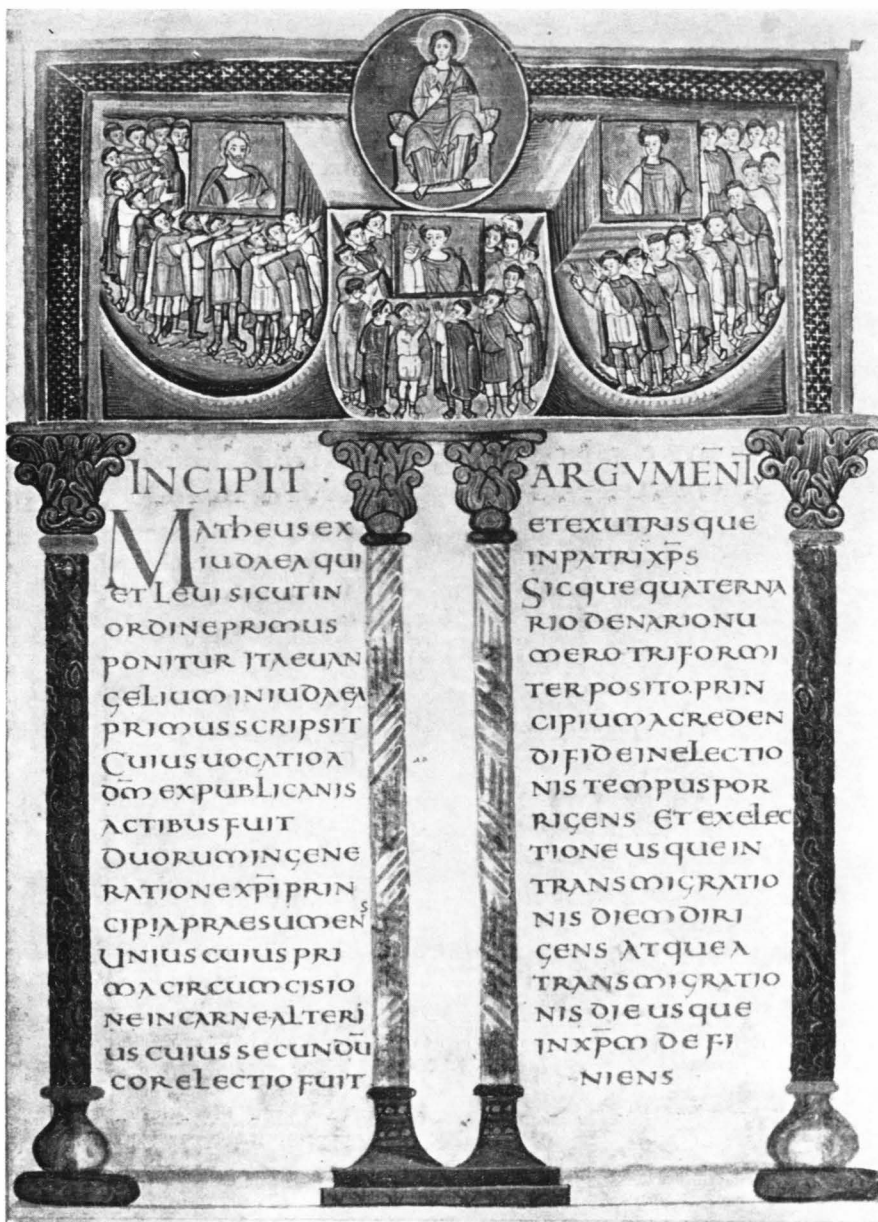 INCIPIT
MATHEUS EX
IUDAEA QUI
ET LEUI SICUT IN
ORDINE PRIMUS
PONITUR ITA EUAN
GELIUM IN IUDAEA
PRIMUS SCRIPSIT
CUIUS UOCATIO A
DM̄ EX PUBLICANIS
ACTIBUS FUIT
DUORUM IN GENE
RATIONE XP̄I PRIN
CIPIA PRAESUMENS
UNIUS CUIUS PRI
MA CIRCUMCISIO
NE IN CARNE ALTERI
US CUIUS SECUNDŪ
COR ELECTIO FUIT
ARGVMEN̄T
ET EX UTRISQUE
IN PATRI XP̄S
SICQUE QUATERNA
RIO DENARIO NU
MERO TRIFORMI
TER POSITO. PRIN
CIPIUM A CREDEN
DI FIDE IN ELECTIO
NIS TEMPUS POR
RIGENS ET EX ELEC
TIONE USQUE IN
TRANSMIGRATIO
NIS DIEM DIRI
GENS ATQUE A
TRANSMIGRATIO
NIS DIE USQUE
IN XP̄M DEFI
NIENS